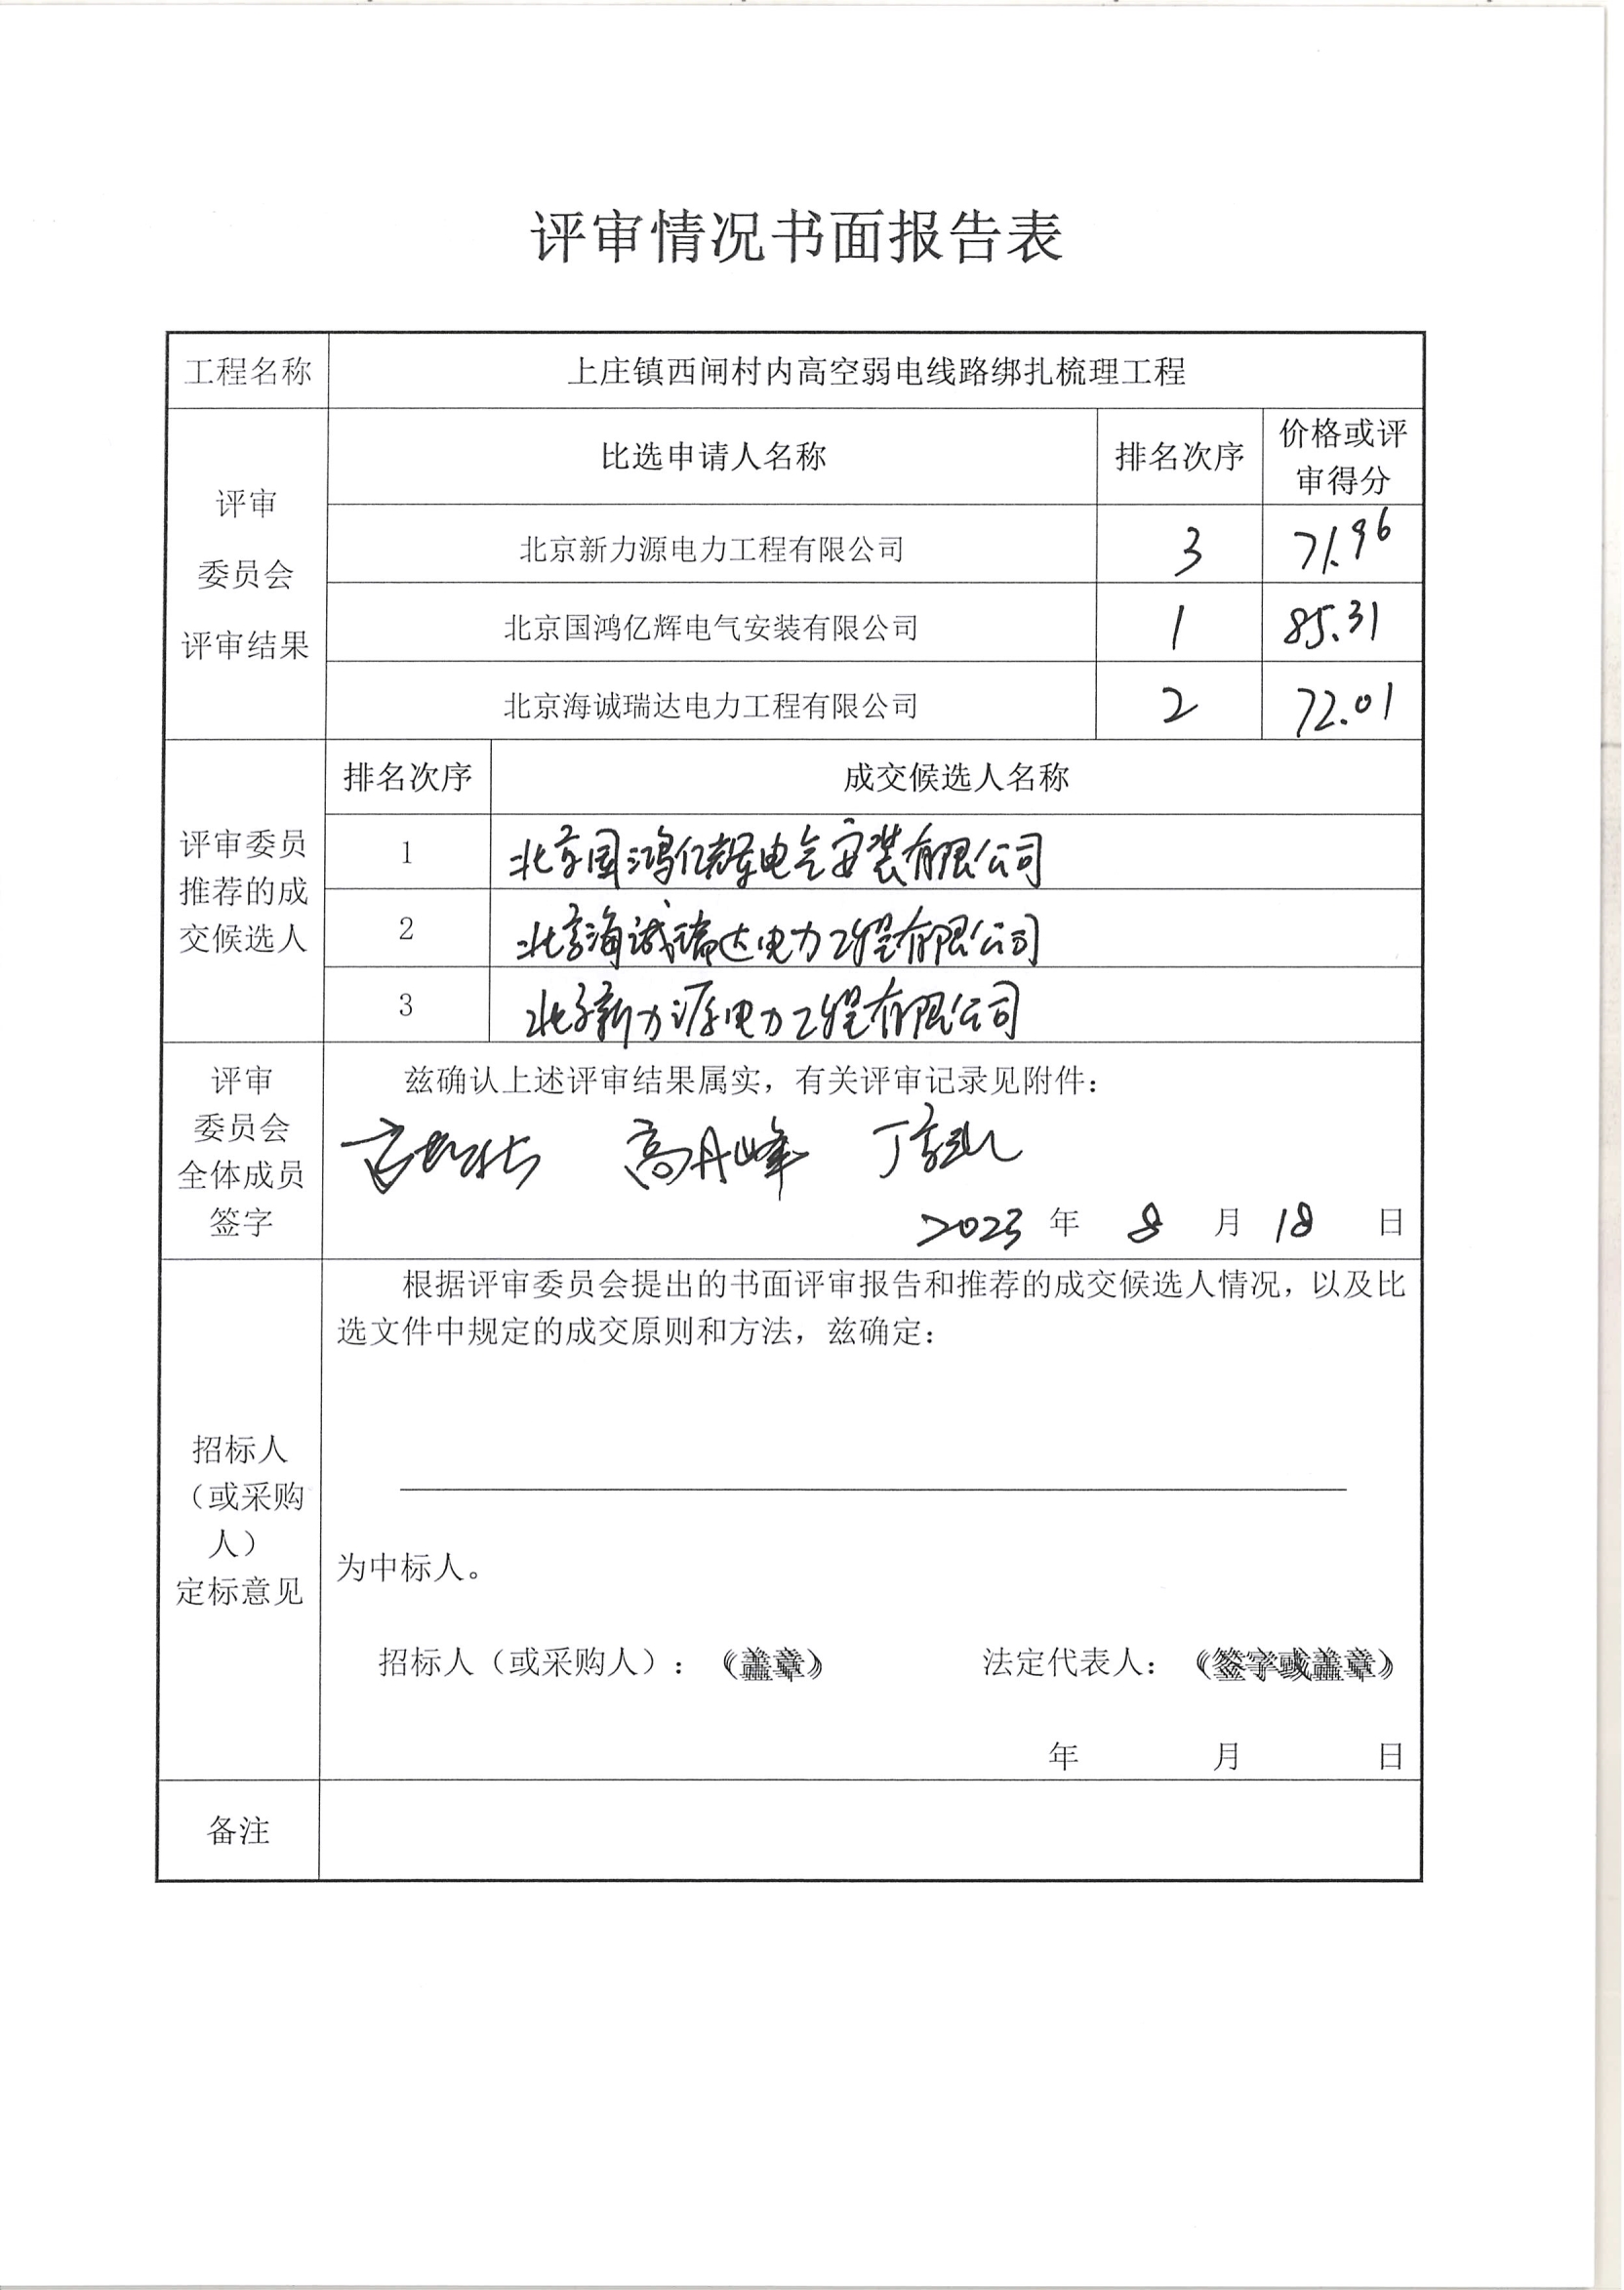 评审情况书面报告表
工程名称
上庄镇西闸村内高空弱电线路绑扎梳理工程
评审
委员会
评审结果
比选申请人名称
排名次序
价格或评
审得分
北京新力源电力工程有限公司
3
71.96
北京国鸿亿辉电气安装有限公司
1
85.31
北京海诚瑞达电力工程有限公司
2
72.01
评审委员
推荐的成
交候选人
排名次序
成交候选人名称
1
北京国鸿亿辉电气安装有限公司
2
北京海诚瑞达电力工程有限公司
3
北京新力源电力工程有限公司
评审
委员会
全体成员
签字
兹确认上述评审结果属实，有关评审记录见附件：
高丹峰
2023 年 8 月 18 日
招标人
（或采购
人）
定标意见
根据评审委员会提出的书面评审报告和推荐的成交候选人情况，以及比
选文件中规定的成交原则和方法，兹确定：
为中标人。
招标人（或采购人）：（盖章） 法定代表人：（签字或盖章）
年 月 日
备注